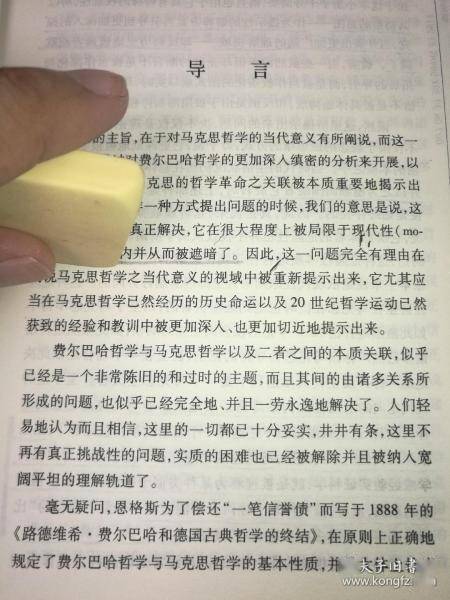 导 言
的主旨，在于对马克思哲学的当代意义有所阐说，而这一
对费尔巴哈哲学的更加深入缜密的分析来开展，以
克思的哲学革命之关联被本质重要地揭示出
一种方式提出问题的时候，我们的意思是说，这
真正解决，它在很大程度上被局限于现代性（mo-
内并从而被遮暗了。因此，这一问题完全有理由在
说马克思哲学之当代意义的视域中被重新提示出来，它尤其应
当在马克思哲学已然经历的历史命运以及 20 世纪哲学运动已然
获致的经验和教训中被更加深入、也更加切近地提示出来。
费尔巴哈哲学与马克思哲学以及二者之间的本质关联，似乎
已经是一个非常陈旧的和过时的主题，而且其间的由诸多关系所
形成的问题，也似乎已经完全地、并且一劳永逸地解决了。人们轻
易地认为而且相信，这里的一切都已十分妥实，井井有条，这里不
再有真正挑战性的问题，实质的困难也已经被解除并且被纳入宽
阔平坦的理解轨道了。
毫无疑问，恩格斯为了偿还“一笔信誉债”而写于 1888 年的
《路德维希·费尔巴哈和德国古典哲学的终结》，在原则上正确地
规定了费尔巴哈哲学与马克思哲学的基本性质，并